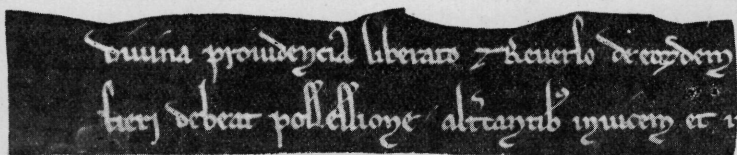 divina providencia liberato ⁊ Reverso de eiusdem
fieri debeat possessione alt̃cantib᷒ invicem et i